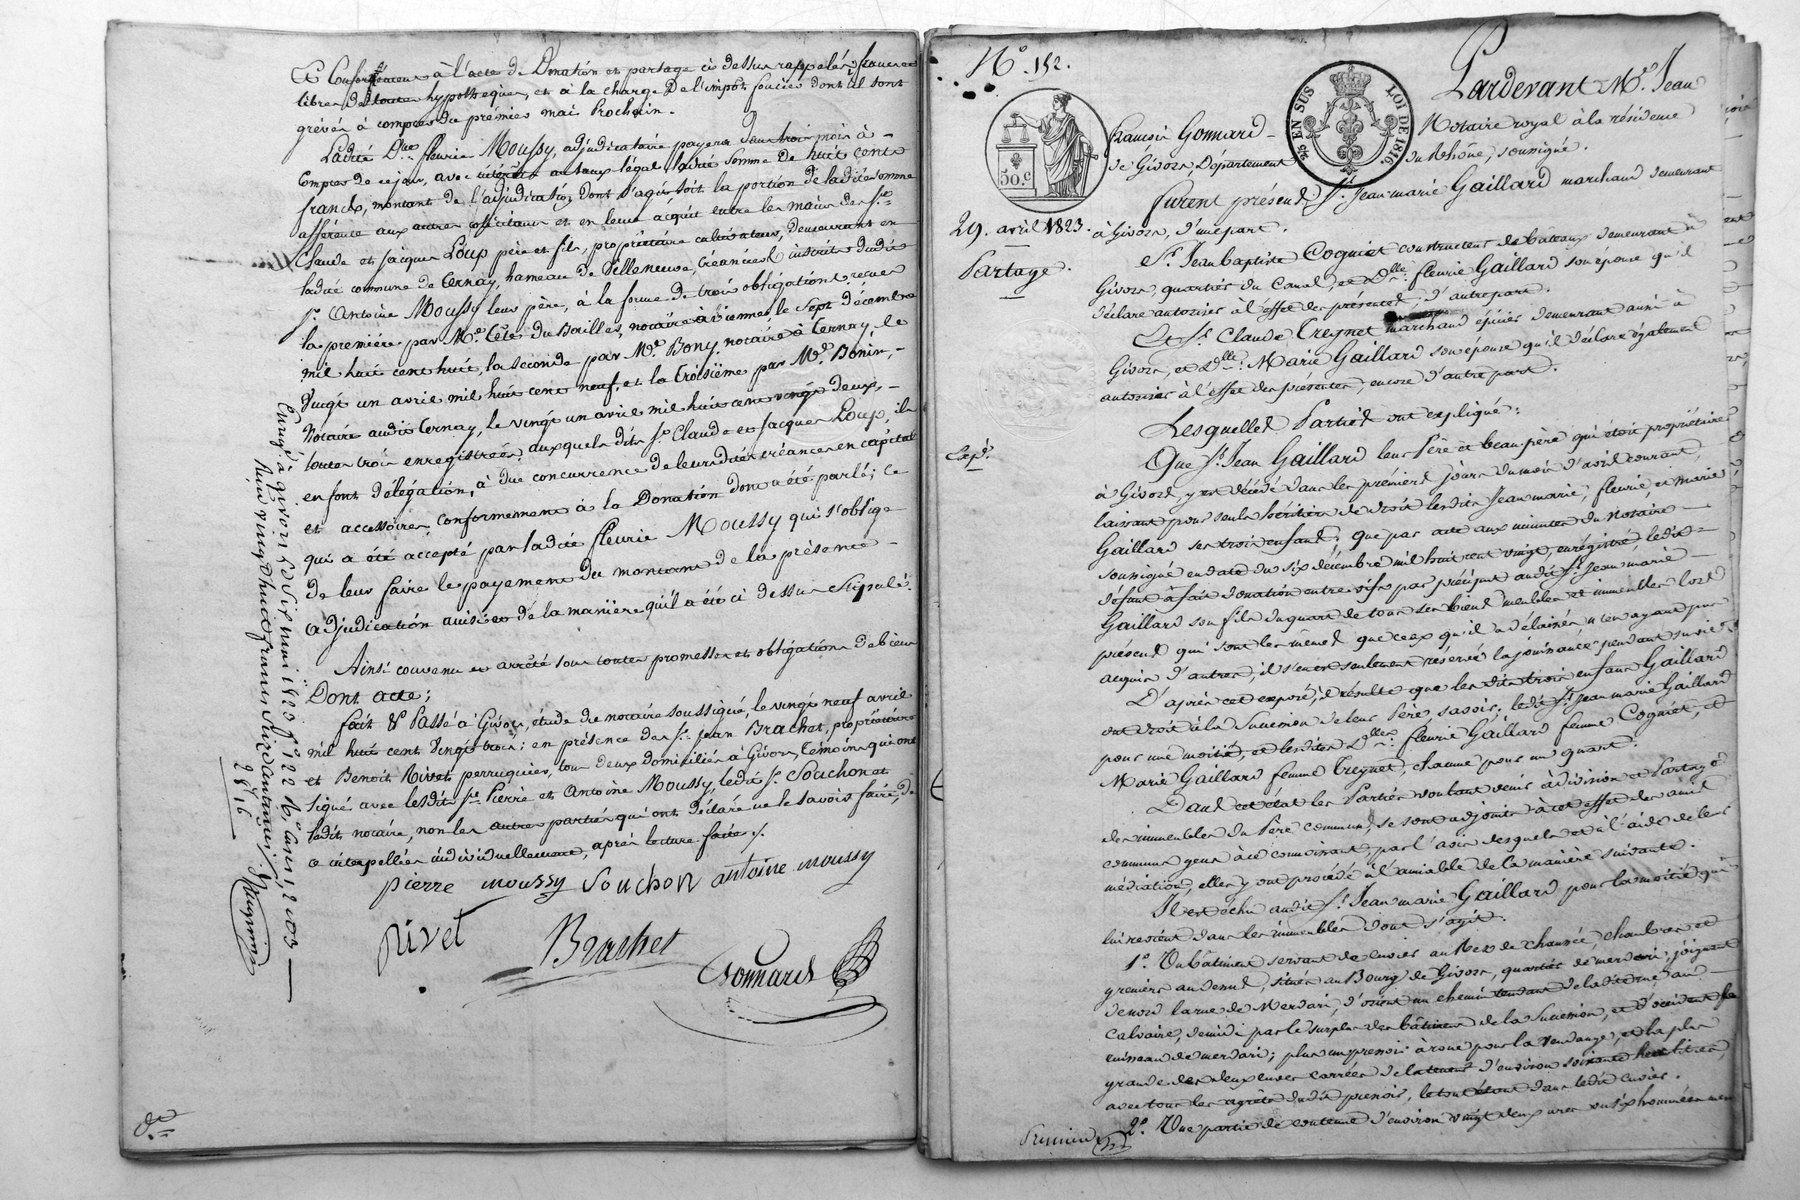 Et Conformément à l'acte de Donation et partage ci dessus rappelés, franc et
libres de toutes hypothèques, et à la charge De l'impôt foncier dont ils sont
grévés à compter du prémier mai Prochain.
Ladite Dlle. fleurie Moussy, adjudicataire payera dans trois mois à
Compter de ce jour, avec intérêts au taux légal ladite Somme de huit cents
francs, montant de l'adjudication dont s'agit, soit la portion de ladite somme
afférente aux autres cohéritiers et en leur acquit entre les mains des Srs.
Claude et Jacques Loup père et fils, propriétaires cultivateurs, demeurant en
ladite commune de Ternay, hameau de Villeneuve, créanciers inscrits dudit
Sr. Antoine Moussy leur père, à la forme de trois obligations reçues
la première par Me. Tête du Bailler, notaire à Vienne, le Sept décembre
mil huit cent huit, la seconde par Me. Bony, notaire à Ternay, le
Vingt un avril mil huit cent neuf, et la Troisième par Me. Bonin,
Notaire audit Ternay, le vingt un avril mil huit cent vingt deux,
toutes trois enregistrées, auxquels dits Srs. Claude et Jacques Loup, ils
en font délégation, à due concurrence de leursdites créances en capital
et accessoires, conformément à la Donation dont a été parlé; ce
qui a été accepté par ladite fleurie Moussy qui s'oblige
de leur faire le payement du montant de la présente
adjudication ainsi et de la manière qu'il a été ci dessus Stipulé.
Ainsi convenu et arrêté sous toutes promesses et obligations de biens
Dont acte;
fait & Passé à Givors, étude du notaire soussigné, le vingt neuf avril
mil huit cent Vingt trois; en présence des Srs. Jean Brachet, propriétaire
et Benoit Rivet, perruquier, tous deux domiciliés à Givors, témoins qui ont
signé avec lesdits Srs. Pierre et Antoine Moussy, ledit Sr. Souchon et
ledit notaire, non les autres parties qui ont déclaré ne le savoir faire, de
ce interpellées individuellement, après lecture faite /.
pierre moussy Souchon antoine moussy
Rivet
Brachet
Gonnard
Enreg. à givors le dix mai 1823 f° 22
Reçu vingt huit francs seize centimes
28 16
No. 152.
Pardevant Me. Jean
50.c
2/5 EN SUS
LOI DE 1816.
François Gonnard
Notaire royal à la résidence
de Givors, Département
du Rhône, soussigné.
29. avril 1823.
Partage.
Expé.
furent présents Sr. Jean marie Gaillard marchand demeurant
à Givors, d'une part.
Sr. Jean baptiste Cognet constructeur de bateaux demeurant à
Givors, quartier du Canal, et Dlle. fleurie Gaillard son épouse qu'il
déclare autoriser à l'effet des présentes, d'autre part.
Et Sr. Claude Treynet marchand épicier demeurant aussi à
Givors, et Dlle. Marie Gaillard son épouse qu'il déclare également
autoriser à l'effet des présentes, encore d'autre part.
Lesquelles Parties ont expliqué:
Que Sr. Jean Gaillard leur Père et beau-père qui étoit propriétaire
à Givors, y est décédé dans les prémiers jours du mois d'avril courant,
laissant pour seuls héritiers de droit lesdits Jean marie, fleurie, et marie
Gaillard ses trois enfants; que par acte aux minutes du Notaire
soussigné en date du six décembre mil huit cent vingt, enrégistré, ledit
défunt a fait donation entre vifs par préciput audit Sr. Jean marie
Gaillard son fils du quart de tous ses biens meubles et immeubles lors
présents qui sont les mêmes que ceux qu'il a délaissés n'en ayant pas
acquis d'autres, il s'en est seulement réservé la jouissance pendant sa vie.
D'après cet exposé, il résulte que les dits trois enfans Gaillard
ont droit à la Succession de leur Père, savoir; ledit Sr. Jean marie Gaillard
pour une moitié, et lesdites Dlles. fleurie Gaillard femme Cognet, et
Marie Gaillard femme Treynet, chacune pour un quart.
Dans cet état les Parties voulant venir à division et Partage
des immeubles du Père commun, se sont adjoints à cet effet des amis
communs gens à ce connoissant, par l'avis desquels et à l'aide de leur
médiation, elles y ont procédé à l'amiable de la manière suivante.
Il est échu audit Sr. Jean marie Gaillard pour la moitié qui
lui revient dans les immeubles dont s'agit.
1°. Un bâtiment servant de cuvier au Rez de chaussée, chambres et
greniers au dessus, situés au Bourg de Givors, quartier de merdari, joignant
de nord la rue de Merdari, d'orient un chemin tendant de ladite rue, au
calvaire, de midi par le surplus des bâtimens de la Succession, et d'occident le
ruisseau de merdari; plus un pressoir à roue pour la Vendange, et la plus
grande des deux cuves carrées de la tenue d'environ soixante hectolitres,
avec tous les agrès dudit pressoir, le tout étant dans ledit cuvier.
2°. Une partie de contenue d'environ vingt deux ares